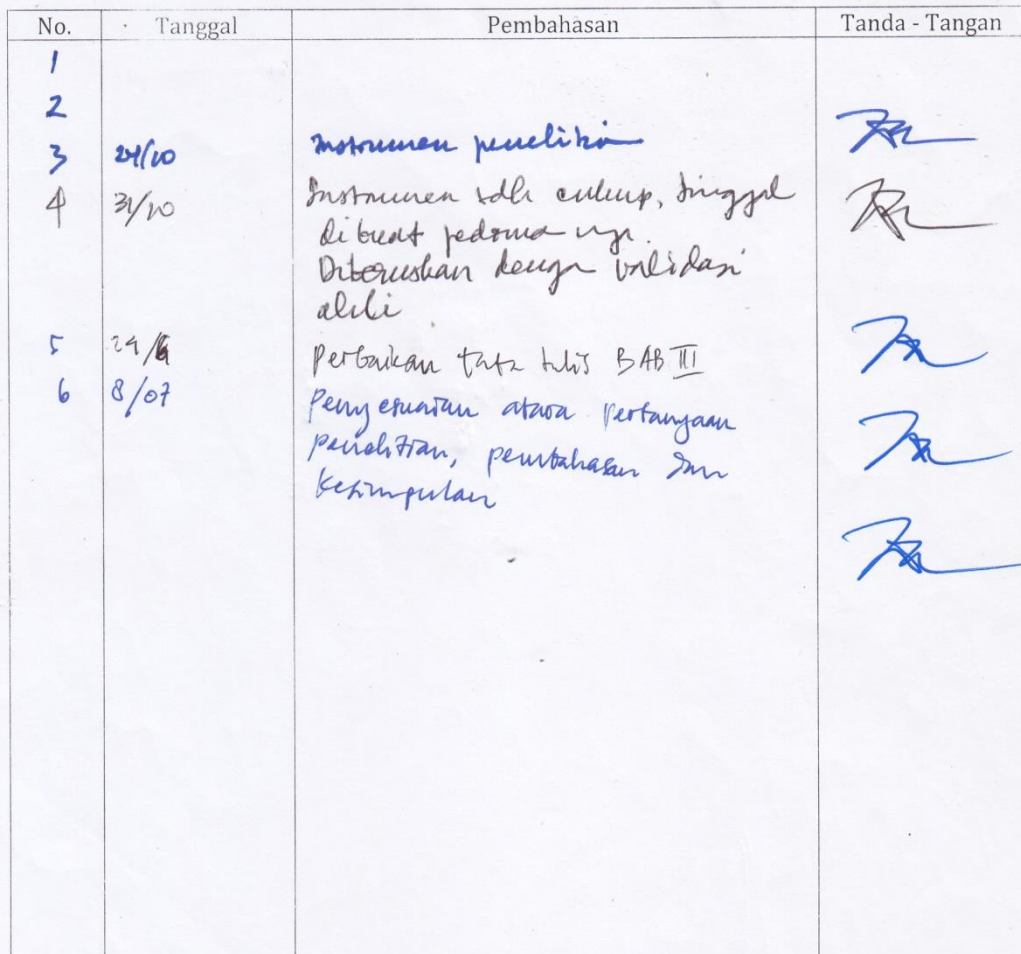 No. Tanggal Pembahasan Tanda - Tangan
1
2
3 24/10 Instrumen penelitian
4 31/10 Instrumen sdh cukup, tinggal
dibuat pedoma nya.
Diteruskan denga validasi
ahli
5 29/6 Perbaikan tata tulis BAB III
6 8/07 Penyesuaian atara pertanyaan
penelitian, pembahasan dan
kesimpulan